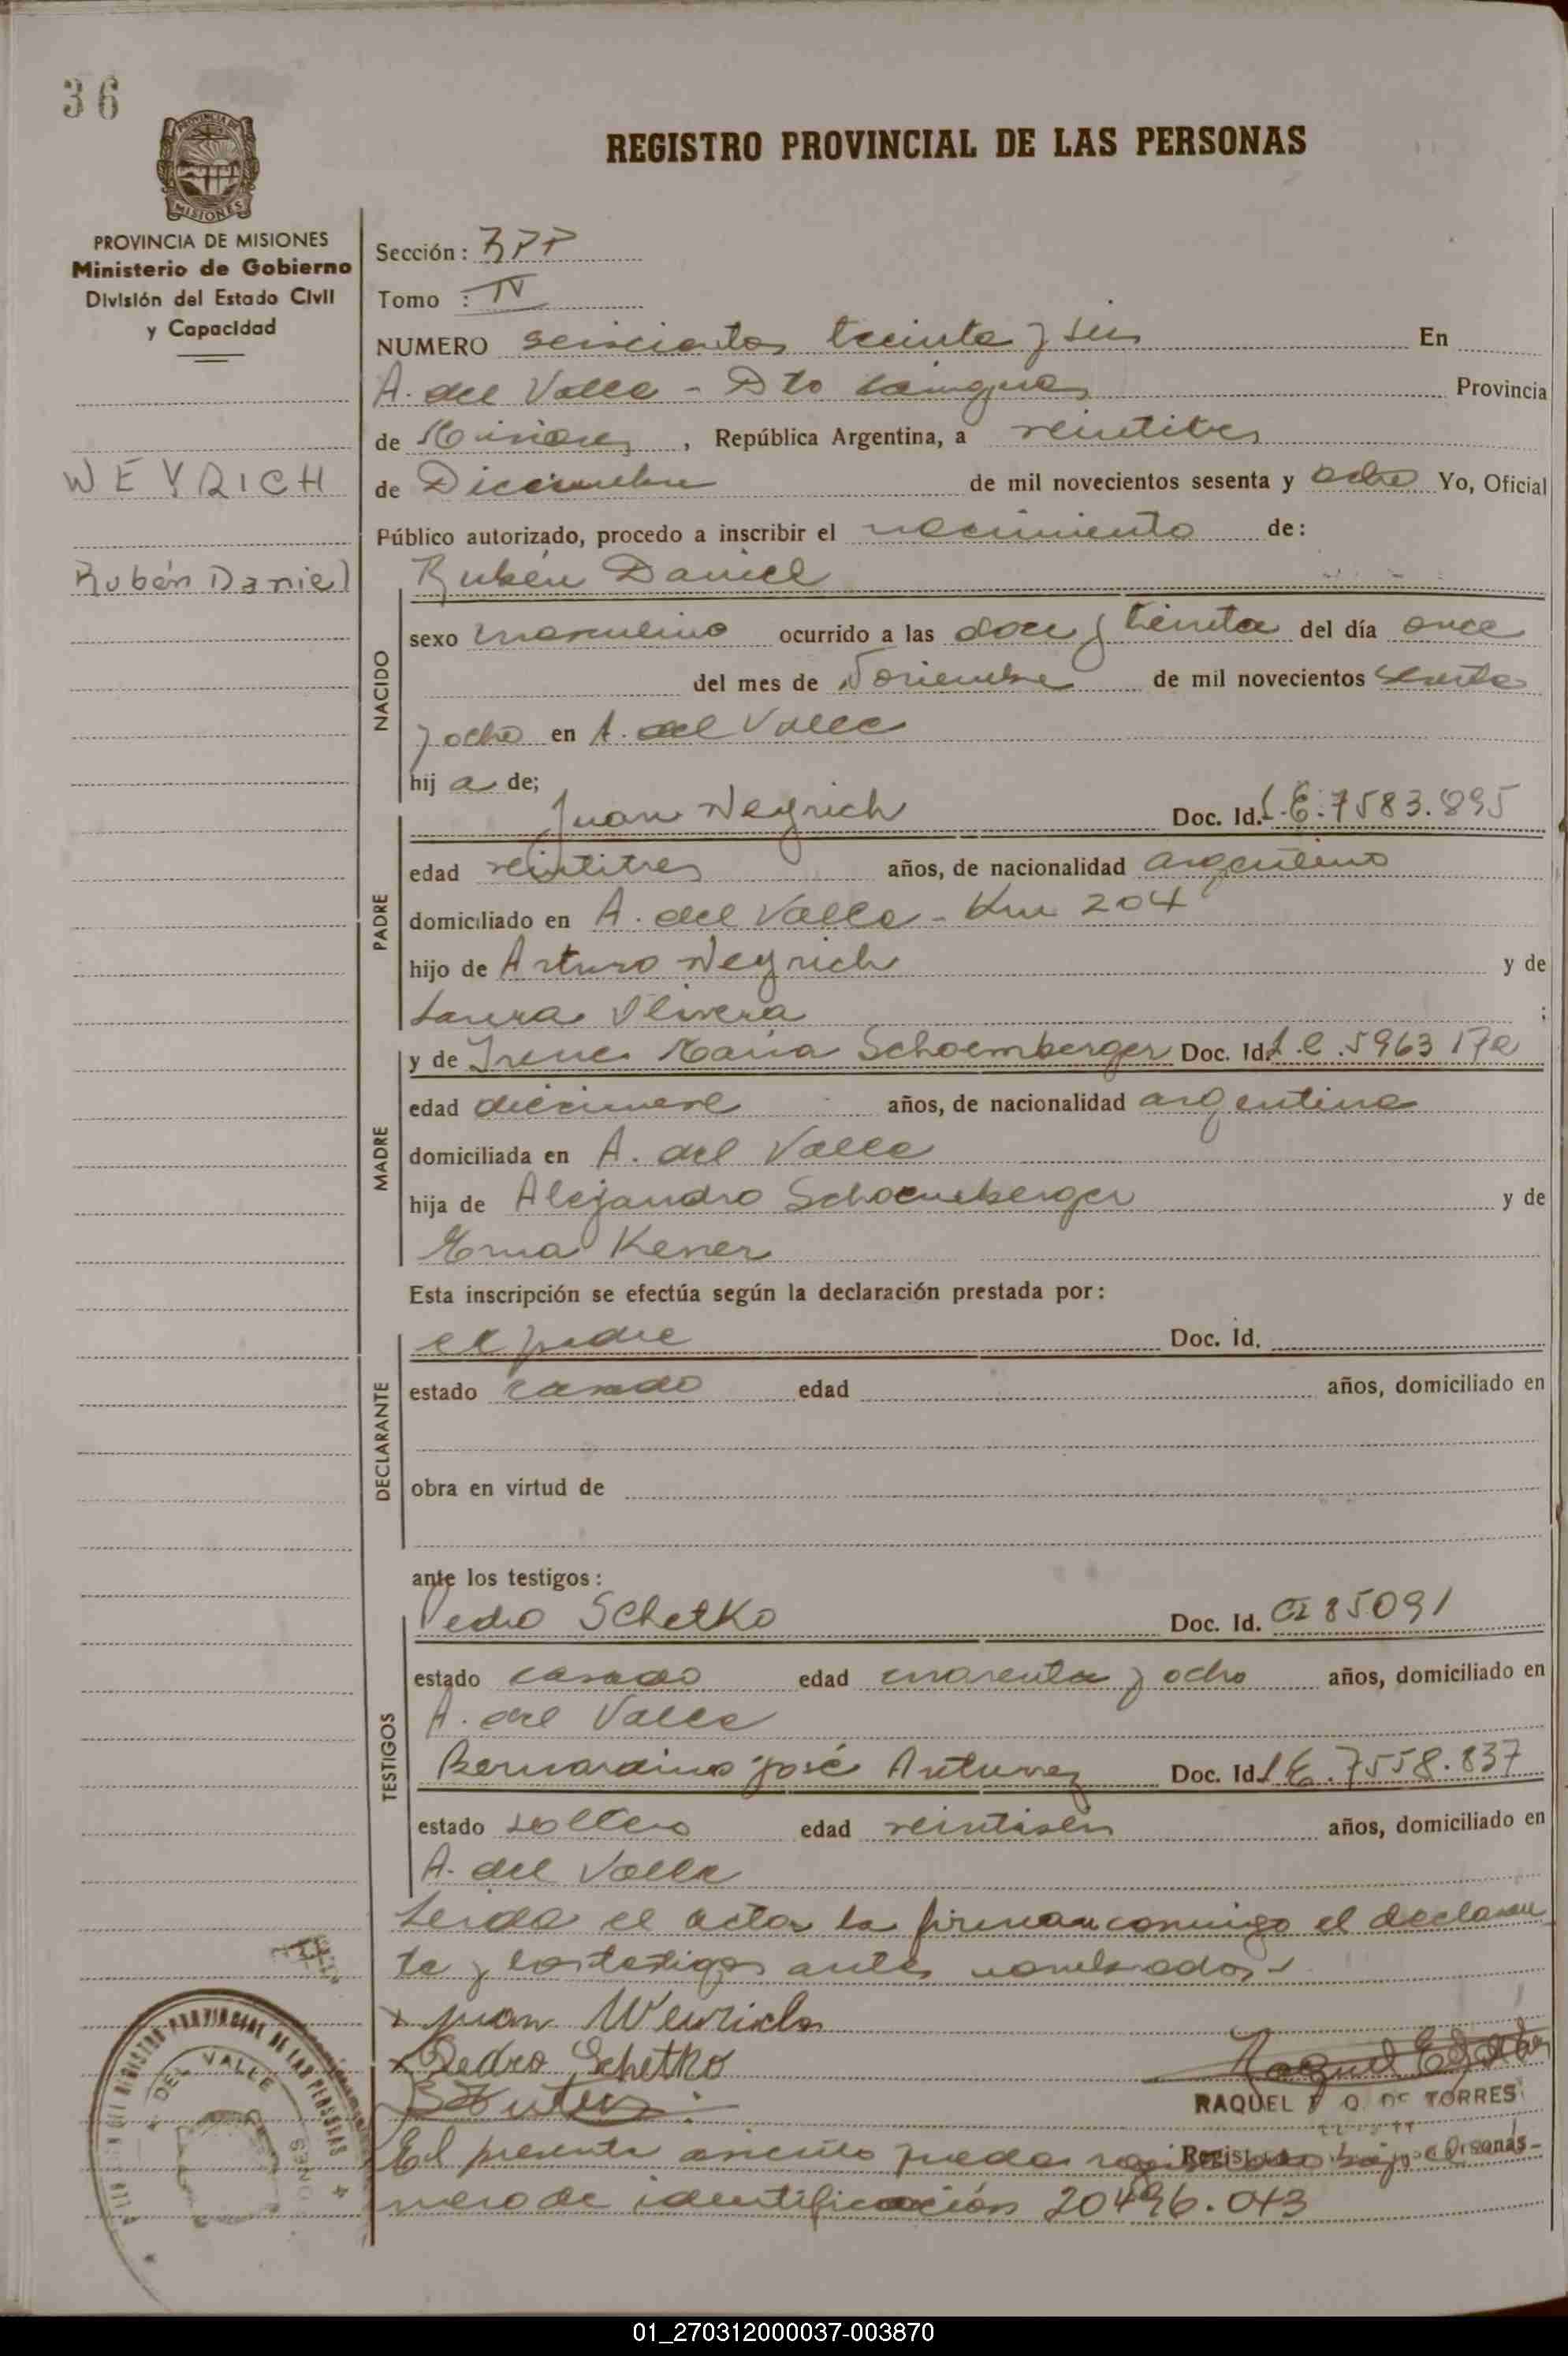 36
PROVINCIA DE
MISIONES
REGISTRO PROVINCIAL DE LAS PERSONAS
PROVINCIA DE MISIONES
Ministerio de Gobierno
División del Estado Civil
y Capacidad
WEYRICH
Rubén Daniel
Sección:
Tomo : IV
NUMERO seiscientos treinta y seis En
A. del Valle - Dto Cainguas Provincia
de Misiones, República Argentina, a veintitres
de Diciembre de mil novecientos sesenta y ocho Yo, Oficial
Público autorizado, procedo a inscribir el nacimiento de:
NACIDO
Rubén Daniel
sexo masculino ocurrido a las doce y treinta del día once
del mes de Noviembre de mil novecientos sesenta
y ocho en A. del Valle
hij a de;
PADRE
Juan Weyrich Doc. Id. L.E. 7583.895
edad veintitres años, de nacionalidad argentino
domiciliado en A. del Valle - Km 204
hijo de Arturo Weyrich y de
Laura Olivera ;
MADRE
y de Irene Maria Schoemberger Doc. Id. L.C. 5963
edad diecinueve años, de nacionalidad argentina
domiciliada en A. del Valle
hija de Alejandro Schoemberger y de
Erna Kener
Esta inscripción se efectúa según la declaración prestada por:
DECLARANTE
el padre Doc. Id.
estado casado edad años, domiciliado en
obra en virtud de
ante los testigos:
TESTIGOS
Pedro Schetko Doc. Id. 85091
estado casado edad cuarenta y ocho años, domiciliado en
A. del Valle
Bernardino José Antunez Doc. Id. L.E. 7558.837
estado soltero edad veintiseis años, domiciliado en
A. del Valle
Leida el acta la firman conmigo el declaran
te y los testigos antes nombrados.
x Juan Weurich
x Pedro Schetko
RAQUEL E O. De TORRES
El presente asiento queda registrado bajo el
mero de identificación 20496.043
REGISTRO PROVINCIAL DE LAS PERSONAS
DEL VALLE
01_270312000037-003870